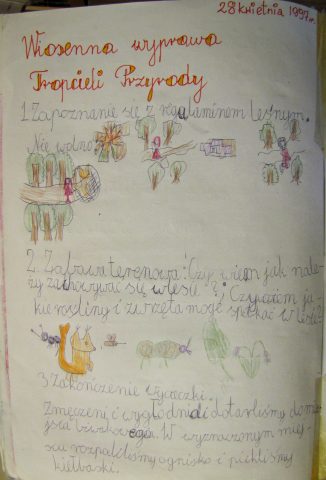 28 kwietnia 1997r.
Wiosenna wyprawa
Tropicieli Przyrody
1. Zapoznanie się z regulaminem leśnym.
Nie wolno:
2. Zabawa terenowa: Czy wiem jak nale-
ży zachowywać się w lesie?; Czy wiem ja-
kie rośliny i zwierzęta mogę spotkać w lesie?
3. Zakończenie wycieczki.
Zmęczeni i wygłodnieli dotarliśmy do mie-
jsca W wyznaczonym miej-
scu rozpaliliśmy ognisko i piekliśmy
kiełbaski.